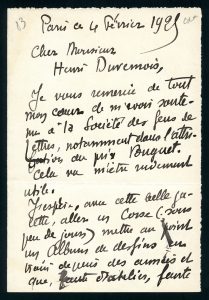 13
Paris ce 4 Février 192
Cher Monsieur
Henri Duvernois,
Je vous remercie de tout
mon cœur de m'avoir soute-
nu à la Société des Gens de
Lettres, notamment dans l'attri-
bution du prix Buquet.
Cela va m'être rudement
utile.
J'espère, avec cette belle ga-
lette, aller en Corse (sous
peu de jours) mettre au point
un Album de dessins en
train depuis des années et
que, faute d'atelier, faute